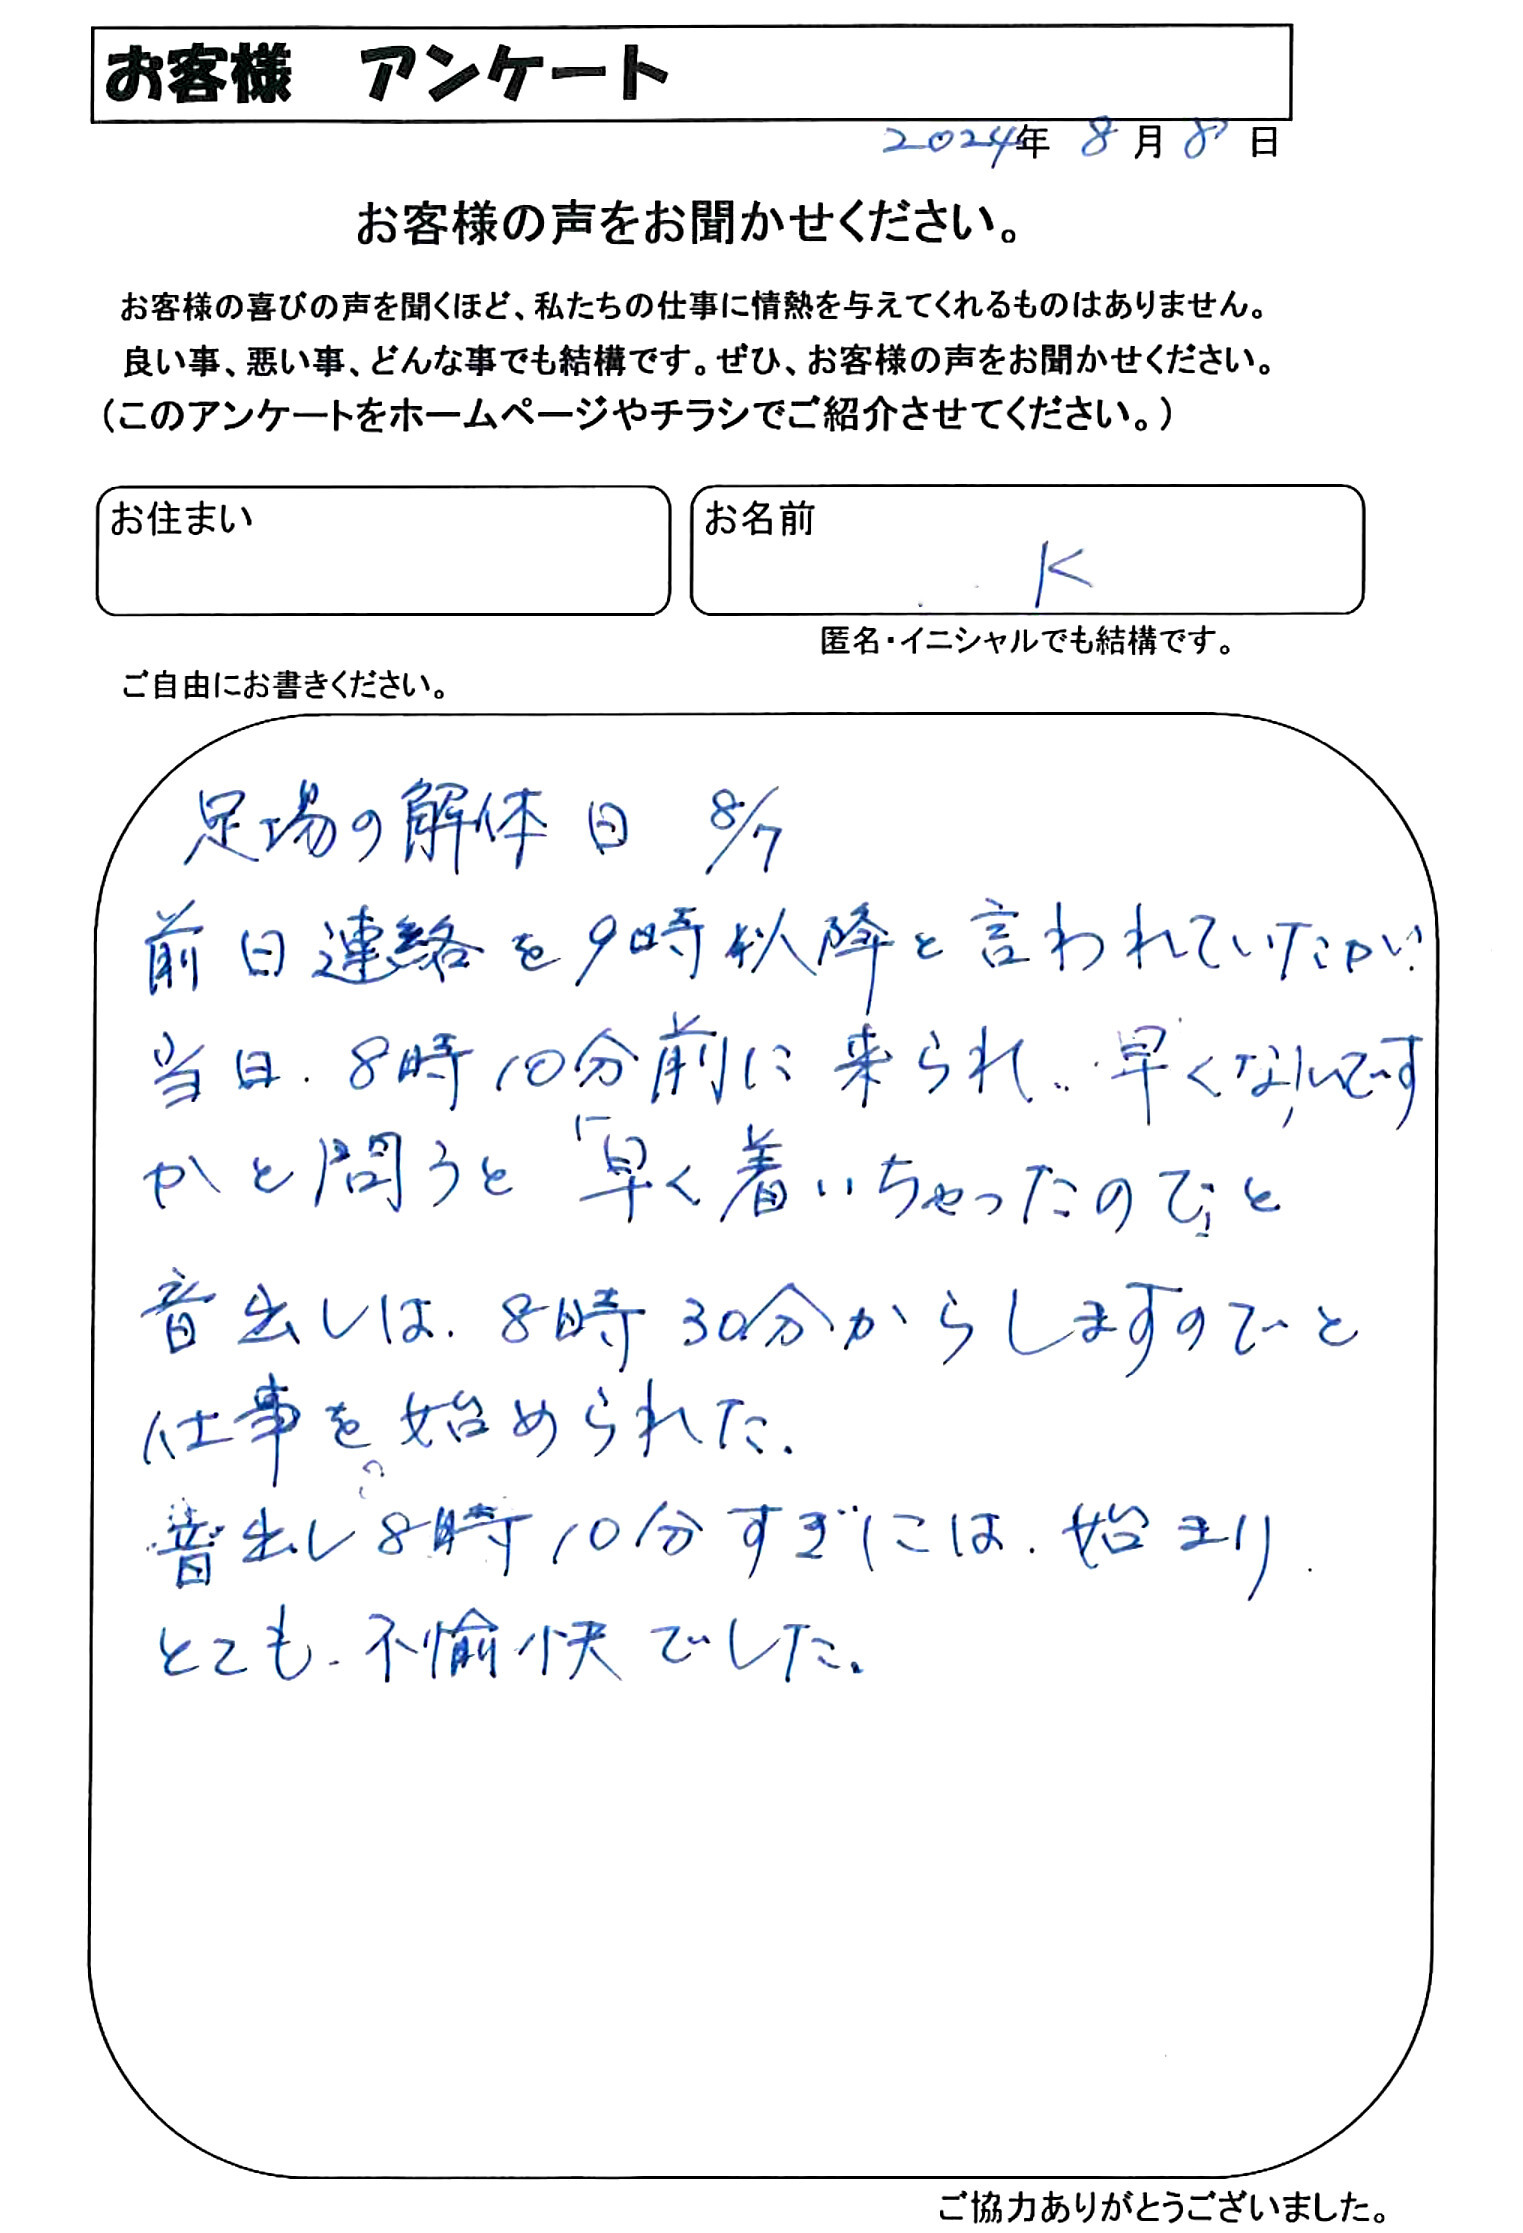 お客様 アンケート
2024年 8月 8日
お客様の声をお聞かせください。
お客様の喜びの声を聞くほど、私たちの仕事に情熱を与えてくれるものはありません。
良い事、悪い事、どんな事でも結構です。ぜひ、お客様の声をお聞かせください。
（このアンケートをホームページやチラシでご紹介させてください。）
お住まい
お名前
K
匿名・イニシャルでも結構です。
ご自由にお書きください。
足場の解体日 8/7
前日連絡を9時以降と言われていたが
当日.8時10分前に来られ、早くないですか
かと問うと「早く着いちゃったので」と
音出しは.8時30分からしますのでと
仕事を始められた.
音出し8時10分すぎには.始まり
とても.不愉快でした。
ご協力ありがとうございました。